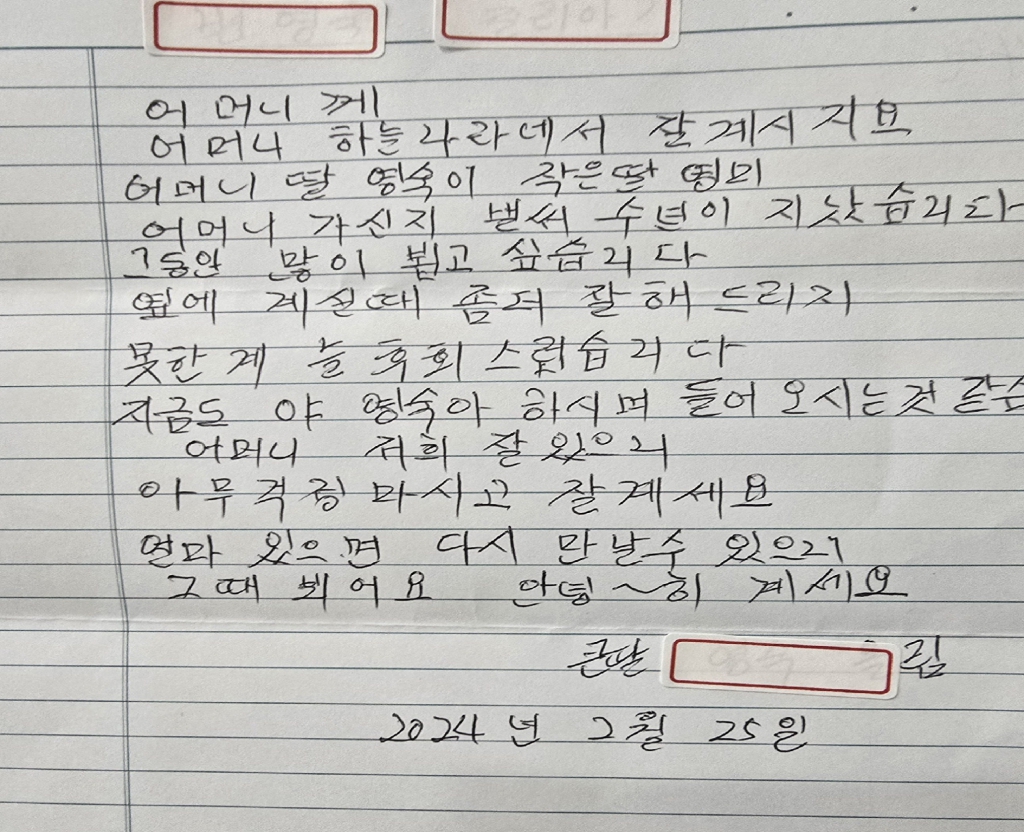 어머니께
어머니 하늘나라에서 잘 계시지요
어머니 딸 영숙이 작은딸 영미
어머니 가신지 벌써 수년이 지났습니다
그동안 많이 뵙고 싶습니다
옆에 계실때 좀더 잘 해 드리지
못한게 늘 후회스럽습니다
지금도 야 영숙아 하시며 들어오시는것 같습
어머니 저희 잘 있으니
아무 걱정 마시고 잘 계세요
얼마 있으면 다시 만날수 있으니
그때 뵈어요 안녕~히 계세요
큰딸 림
2024년 2월 25일